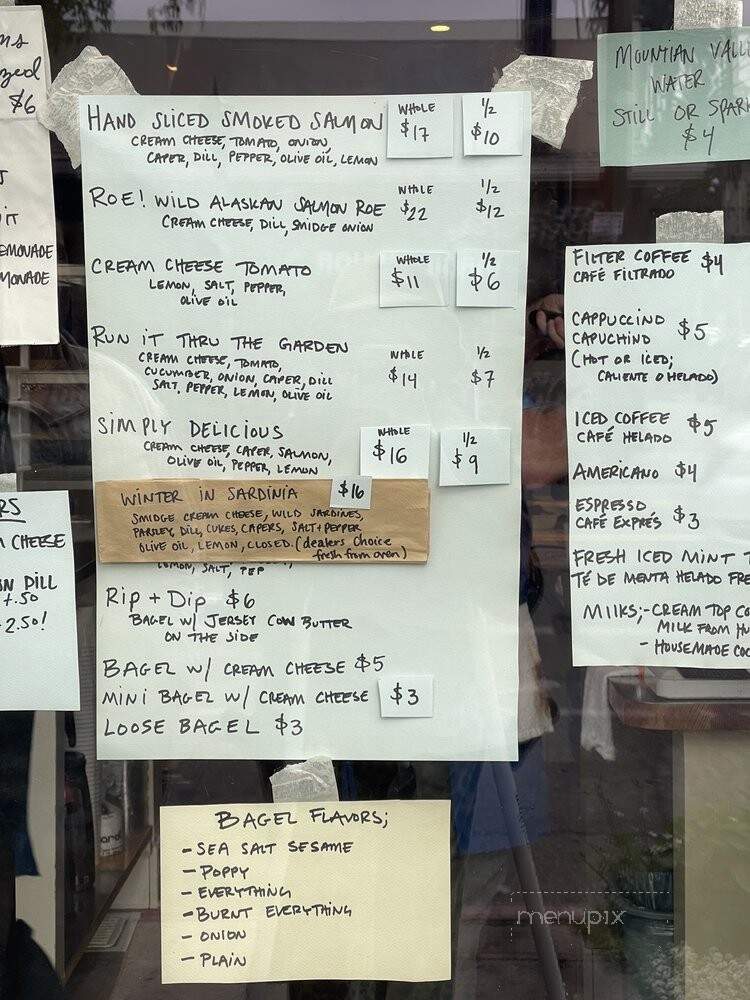 $6
HAND SLICED SMOKED SALMON WHOLE $17 1/2 $10
CREAM CHEESE, TOMATO, ONION,
CAPER, DILL, PEPPER, OLIVE OIL, LEMON
ROE! WILD ALASKAN SALMON ROE WHOLE $22 1/2 $12
CREAM CHEESE, DILL, SMIDGE ONION
CREAM CHEESE TOMATO WHOLE $11 1/2 $6
LEMON, SALT, PEPPER,
OLIVE OIL
RUN IT THRU THE GARDEN WHOLE $14 1/2 $7
CREAM CHEESE, TOMATO,
CUCUMBER, ONION, CAPER, DILL
SALT, PEPPER, LEMON, OLIVE OIL
SIMPLY DELICIOUS WHOLE $16 1/2 $9
CREAM CHEESE, CAPER, SALMON,
OLIVE OIL, PEPPER, LEMON
WINTER IN SARDINIA $16
SMIDGE CREAM CHEESE, WILD SARDINES,
PARSLEY, DILL, CUKES, CAPERS, SALT + PEPPER
OLIVE OIL, LEMON, CLOSED. (dealers choice
fresh from oven)
LEMON, SALT, PEP
Rip + Dip $6
BAGEL W/ JERSEY COW BUTTER
ON THE SIDE
BAGEL W/ CREAM CHEESE $5
MINI BAGEL W/ CREAM CHEESE $3
LOOSE BAGEL $3
BAGEL FLAVORS;
- SEA SALT SESAME
- POPPY
- EVERYTHING
- BURNT EVERYTHING
- ONION
- PLAIN
CHEESE
DILL
+.50
2.50!
MOUNTIAN VALL
WATER
STILL OR SPARK
$4
FILTER COFFEE $4
CAFÉ FILTRADO
CAPPUCCINO $5
CAPUCHINO
(HOT OR ICED;
CALIENTE O HELADO)
ICED COFFEE $5
CAFÉ HELADO
AMERICANO $4
ESPRESSO $3
CAFÉ EXPRÉS
FRESH ICED MINT T
TÉ DE MENTA HELADO FRE
MILKS; - CREAM TOP CO
MILK FROM HU
- HOUSEMADE COC
menupix